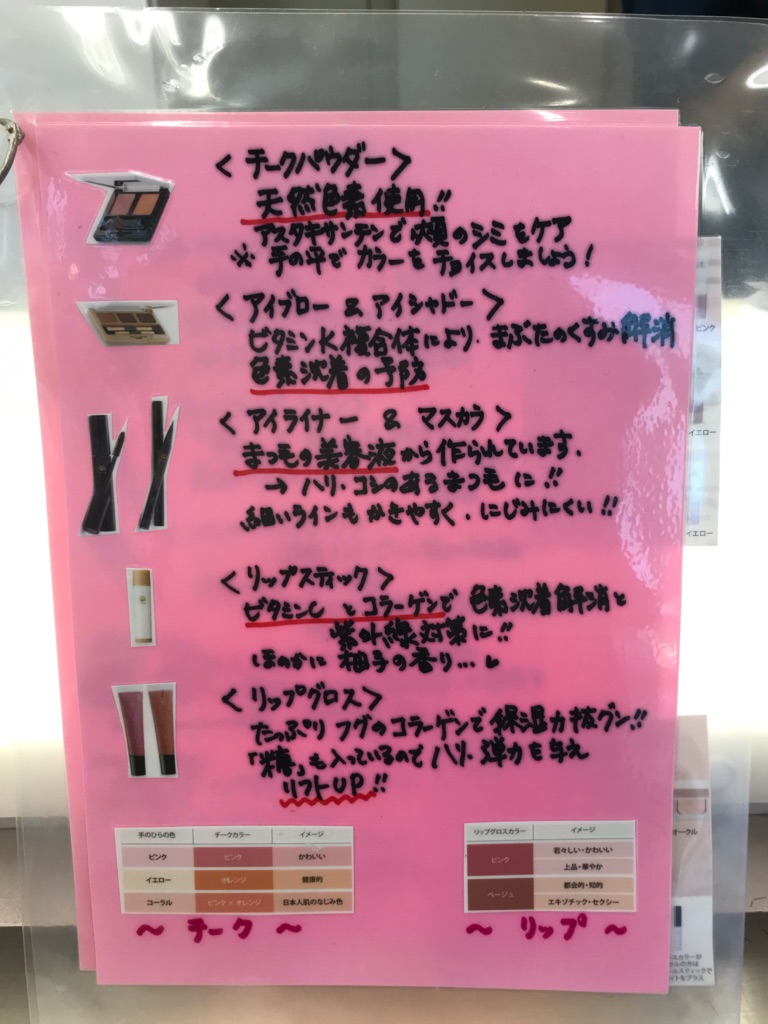 <チークパウダー>
天然色素使用!!
アスタキサンチンで頬のシミをケア
※ 手の平でカラーをチョイスしましょう!
<アイブロー & アイシャドー>
ビタミンK複合体により、まぶたのくすみ解消
色素沈着の予防
<アイライナー & マスカラ>
まつ毛の美容液から作られています。
→ ハリ・コシのあるまつ毛に!!
細いラインもかきやすく、にじみにくい!!
<リップスティック>
ビタミンCとコラーゲンで 色素沈着解消と
紫外線対策に!!
ほのかに 柚子の香り…
<リップグロス>
たっぷりフグのコラーゲンで保湿力抜グン!!
「糖」も入っているのでハリ・弾力を与え
リフトUP!!
手のひらの色 チークカラー イメージ
ピンク ピンク かわいい
イエロー オレンジ 健康的
コーラル ピンク×オレンジ 日本人肌のなじみ色
〜 チーク 〜
リップグロスカラー イメージ
ピンク 若々しい・かわいい
上品・華やか
ベージュ 都会的・知的
エキゾチック・セクシー
〜 リップ 〜
ピンク
イエロー
イエロー
オークル